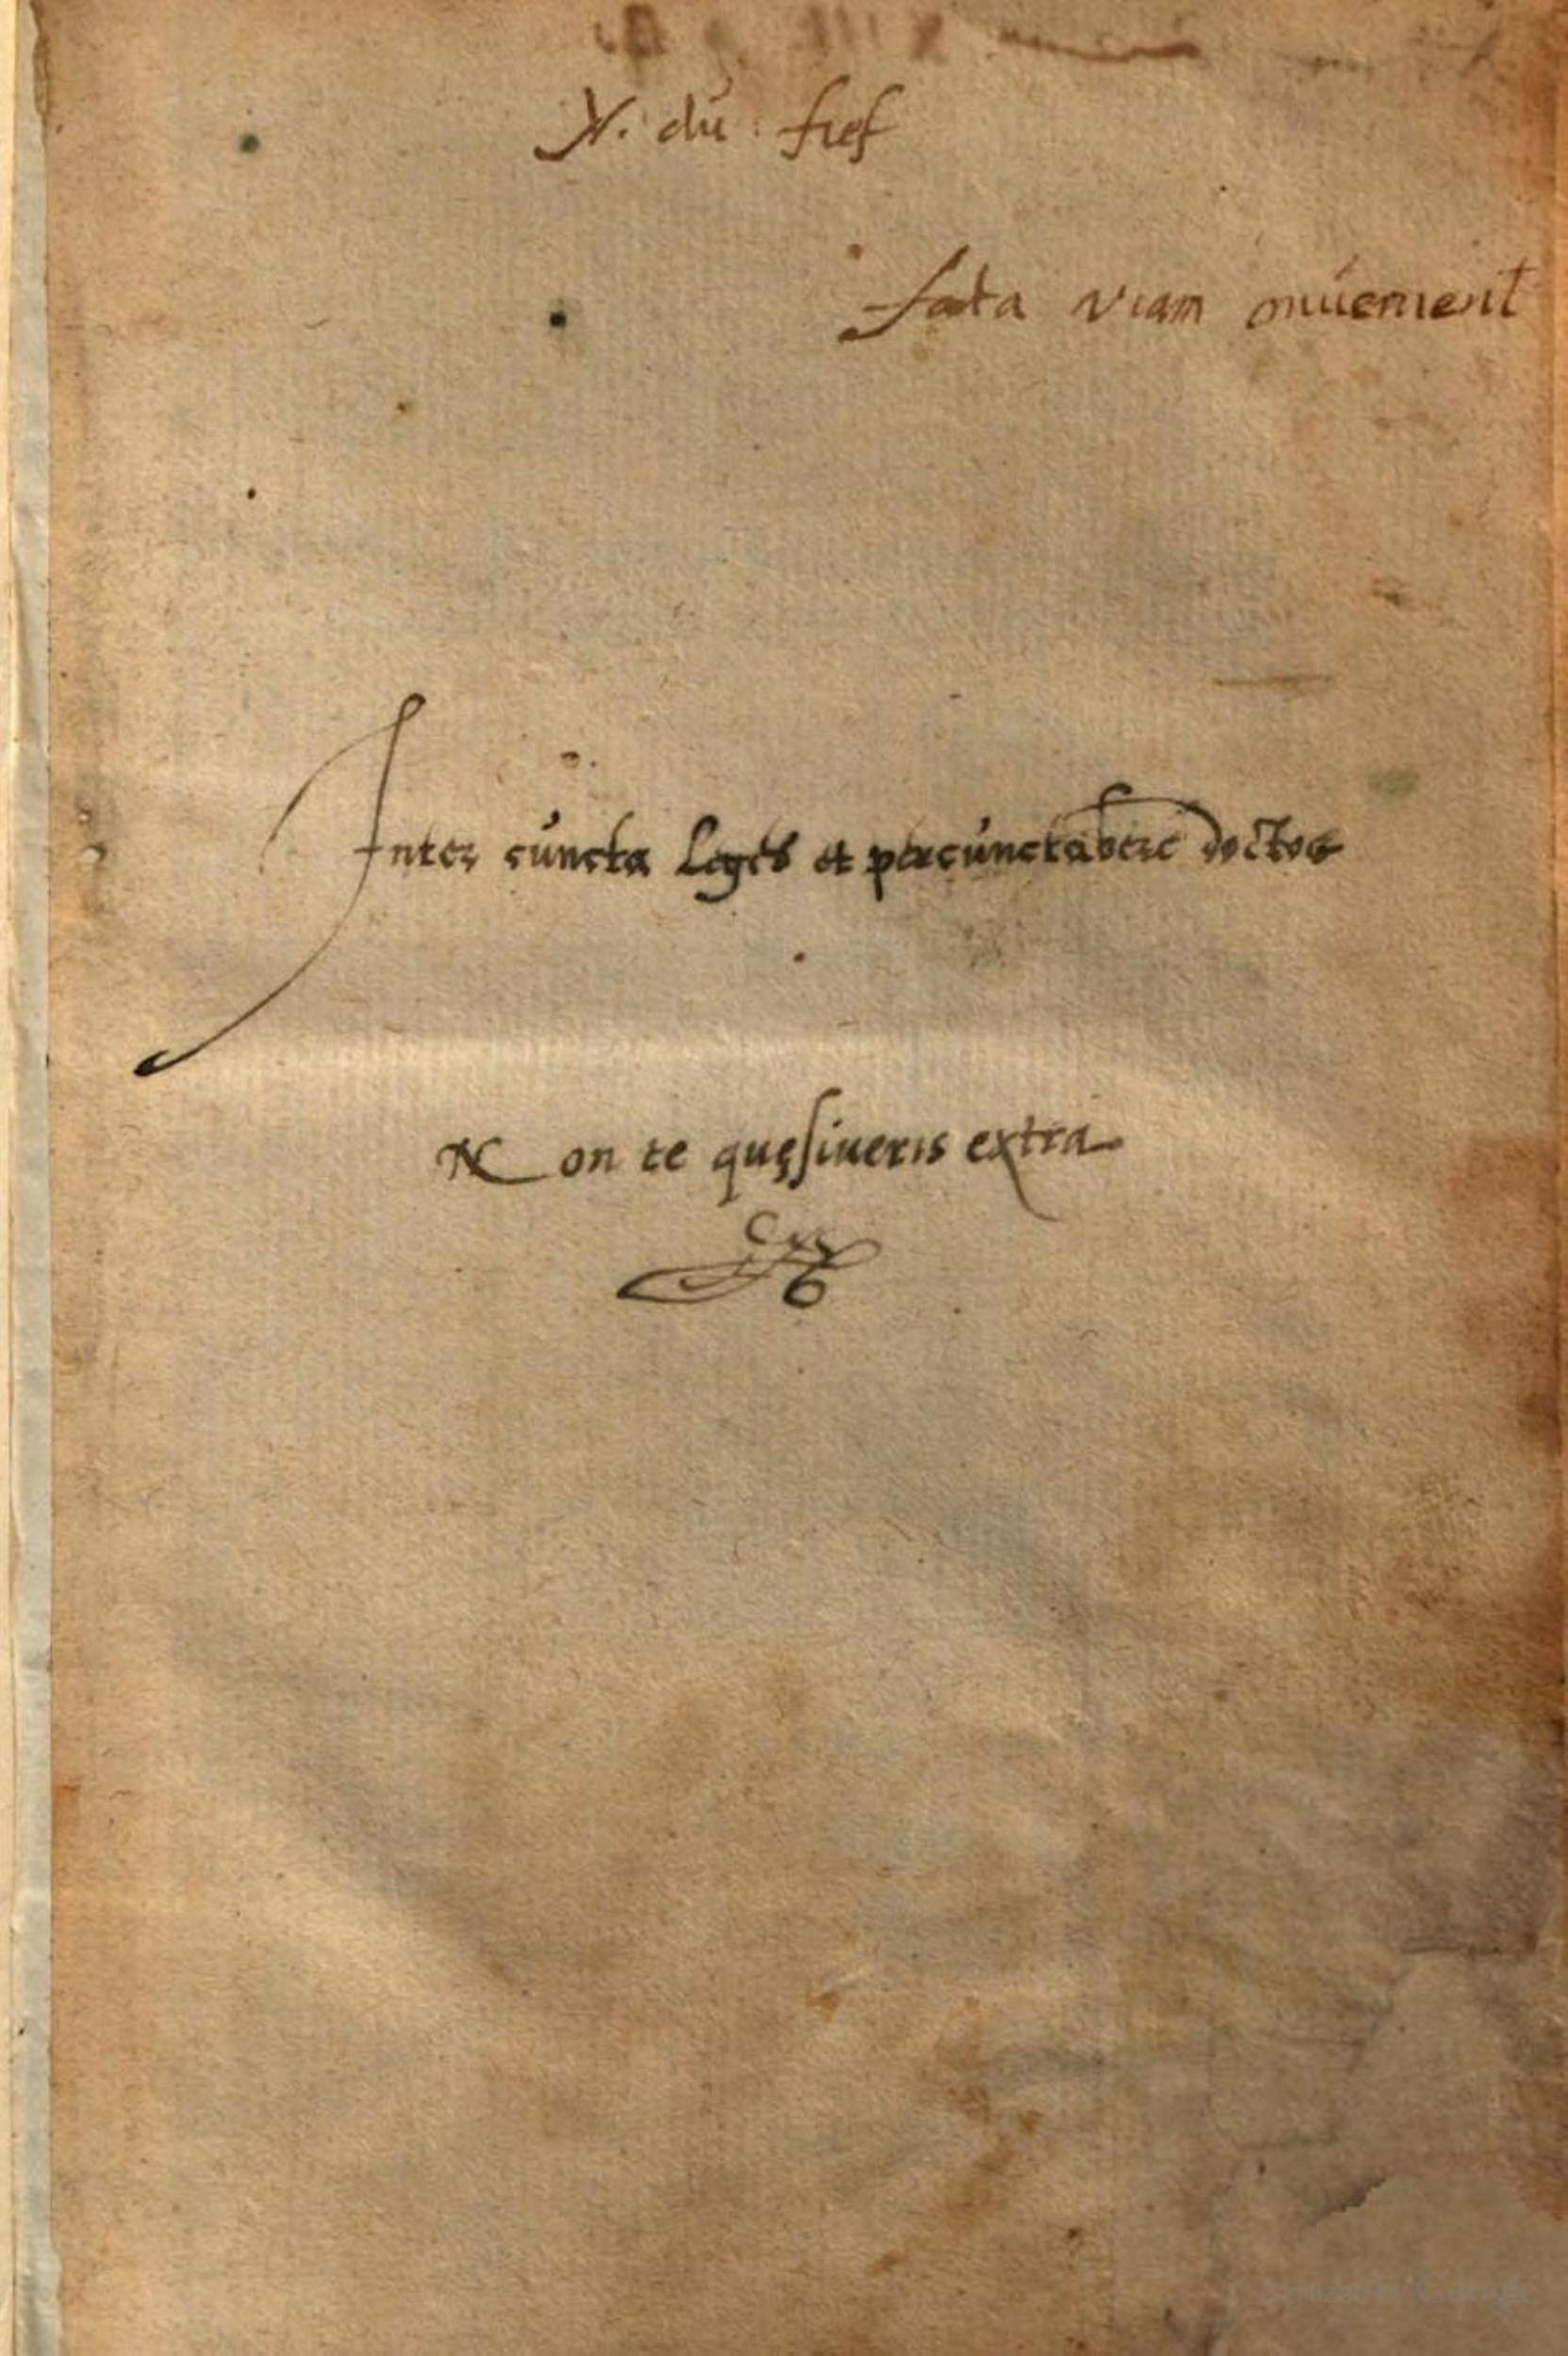 N. du fief
fata viam invenient
Inter cuncta leges et percunctabere doctos
Non te quęsiveris extra